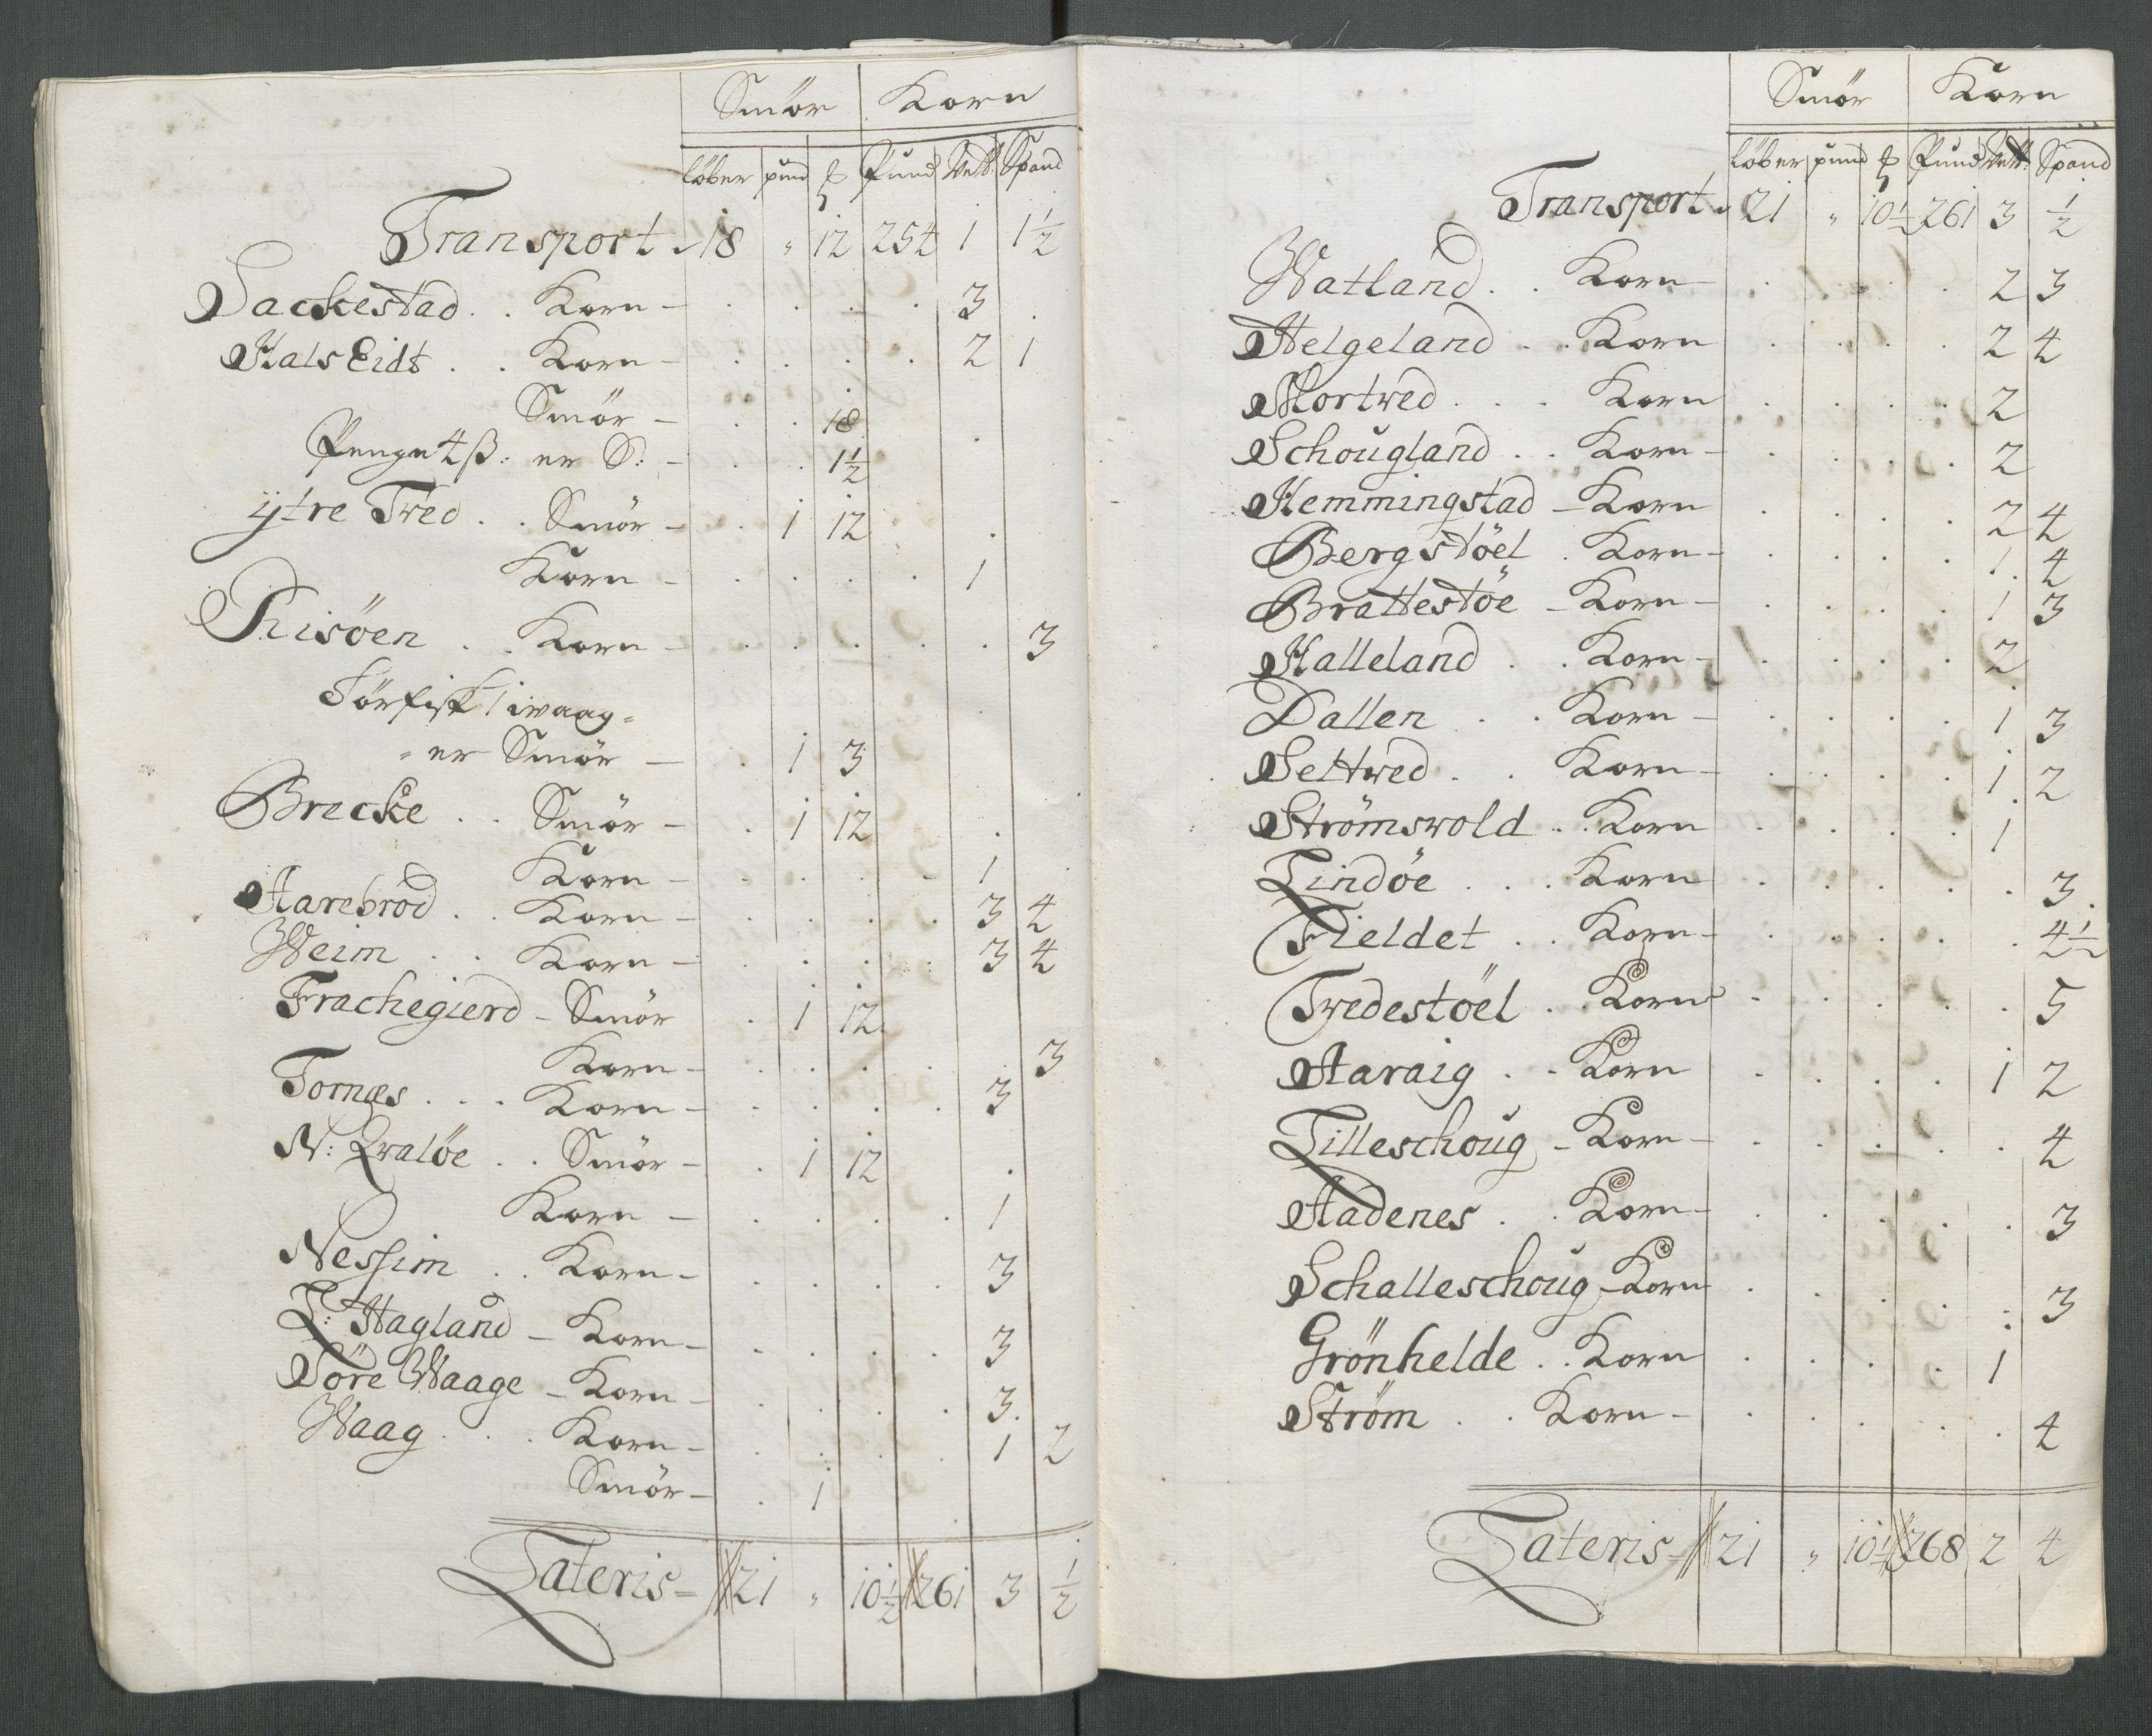 Smör Korn
löber pund ℔ Pund Vett: Spand
Transport 18 " 12 254 1 1½
Sackestad . . Korn - 3
Hals Eidt . . Korn - 2 1
Smör - 18
Penge 4 ß: er S: - 1½
ÿtre Tved . . Smör - 1 12
Korn - 1
Risöen . . Korn - 3
Törfisk 1 waag =
= er Smör - 1 3
Brecke . . Smör - 1 12
Korn - 1
Aarebrod . . Korn - 3 4
Weim . . Korn - 3 4
Frachegierd - Smör 1 12
Korn - 3
Tornæs . . . Korn - 3
N: Qvalöe . . Smör - 1 12
Korn - 1
Nessim . . Korn - 3
L: Hagland - Korn - 3
Söre Waage - Korn - 3
Waag . . . Korn - 1 2
Smör - 1
Lateris = 21 " 10½ 261 3 ½
Smör Korn
löber pund ℔ Pund Vett: Spand
Transport 21 " 10½ 261 3 ½
Watland . . Korn - 2 3
Helgeland . . Korn 2 4
Mortved . . . Korn 2
Schougland . . Korn - 2
Hemmingstad - Korn 2 4
Bergstöel . Korn - 1 4
Brattestöe - Korn - 1 3
Halleland . . Korn - 2
Dallen . . Korn - 1 3
Settved . . Korn - 1 2
Strömswold . . Korn 1
Lindöe . . . Korn 3
Fieldet . . Korn - 4½
Tvedestöel . . Korn 5
Aaraig . . Korn 1 2
Lilleschoug - Korn - 4
Aadenes . . Korn - 3
Schalleschoug - Korn 3
Grönhelde . . Korn 1
Ström . . Korn - 4
Lateris = 21 " 10½ 268 2 4